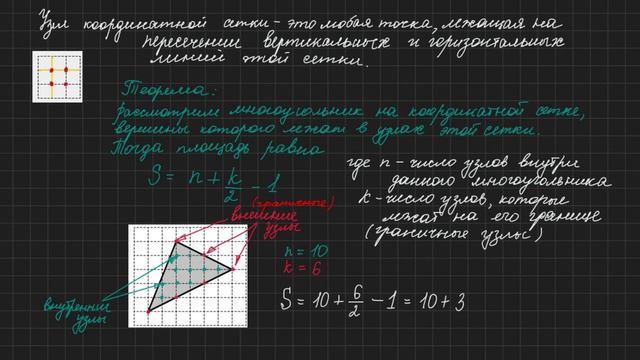 Узел координатной сетки - это любая точка, лежащая на
пересечении вертикальных и горизонтальных
линий этой сетки.
Теорема:
Рассмотрим многоугольник на координатной сетке,
вершины которого лежат в узлах этой сетки.
Тогда площадь равна
S = n + k/2 - 1
где n - число узлов внутри
данного многоугольника
k - число узлов, которые
лежат на его границе
(граничные узлы)
(граничные)
внешние
узлы
n = 10
k = 6
внутренние
узлы
S = 10 + 6/2 - 1 = 10 + 3